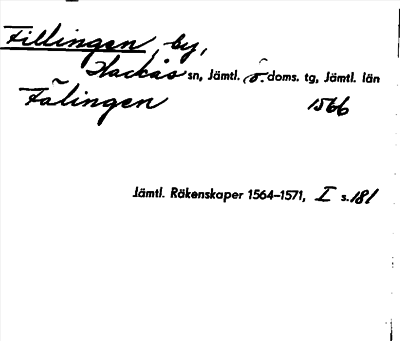 Fillingen, by,
Hackås sn, Jämtl. ö. doms. tg, Jämtl. län
Fålingen 1566
Jämtl. Räkenskaper 1564–1571, I s. 181